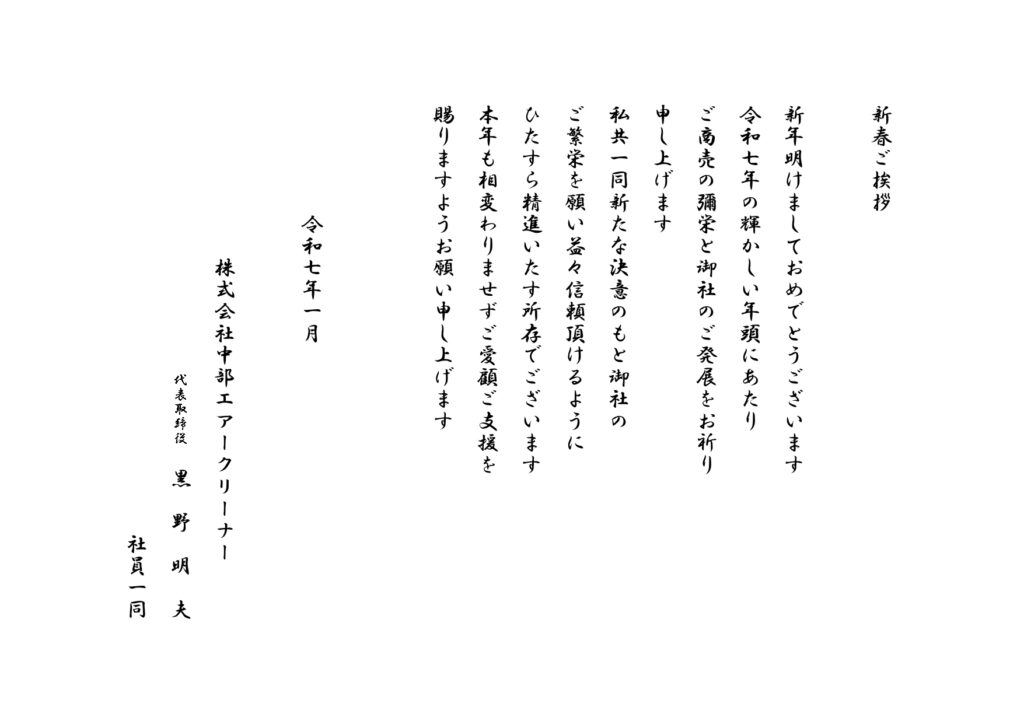 新春ご挨拶
新年明けましておめでとうございます
令和七年の輝かしい年頭にあたり
ご商売の彌栄と御社のご発展をお祈り
申し上げます
私共一同新たな決意のもと御社の
ご繁栄を願い益々信頼頂けるように
ひたすら精進いたす所存でございます
本年も相変わりませずご愛顧ご支援を
賜りますようお願い申し上げます
令和七年一月
株式会社中部エアークリーナー
代表取締役 黒野明夫
社員一同